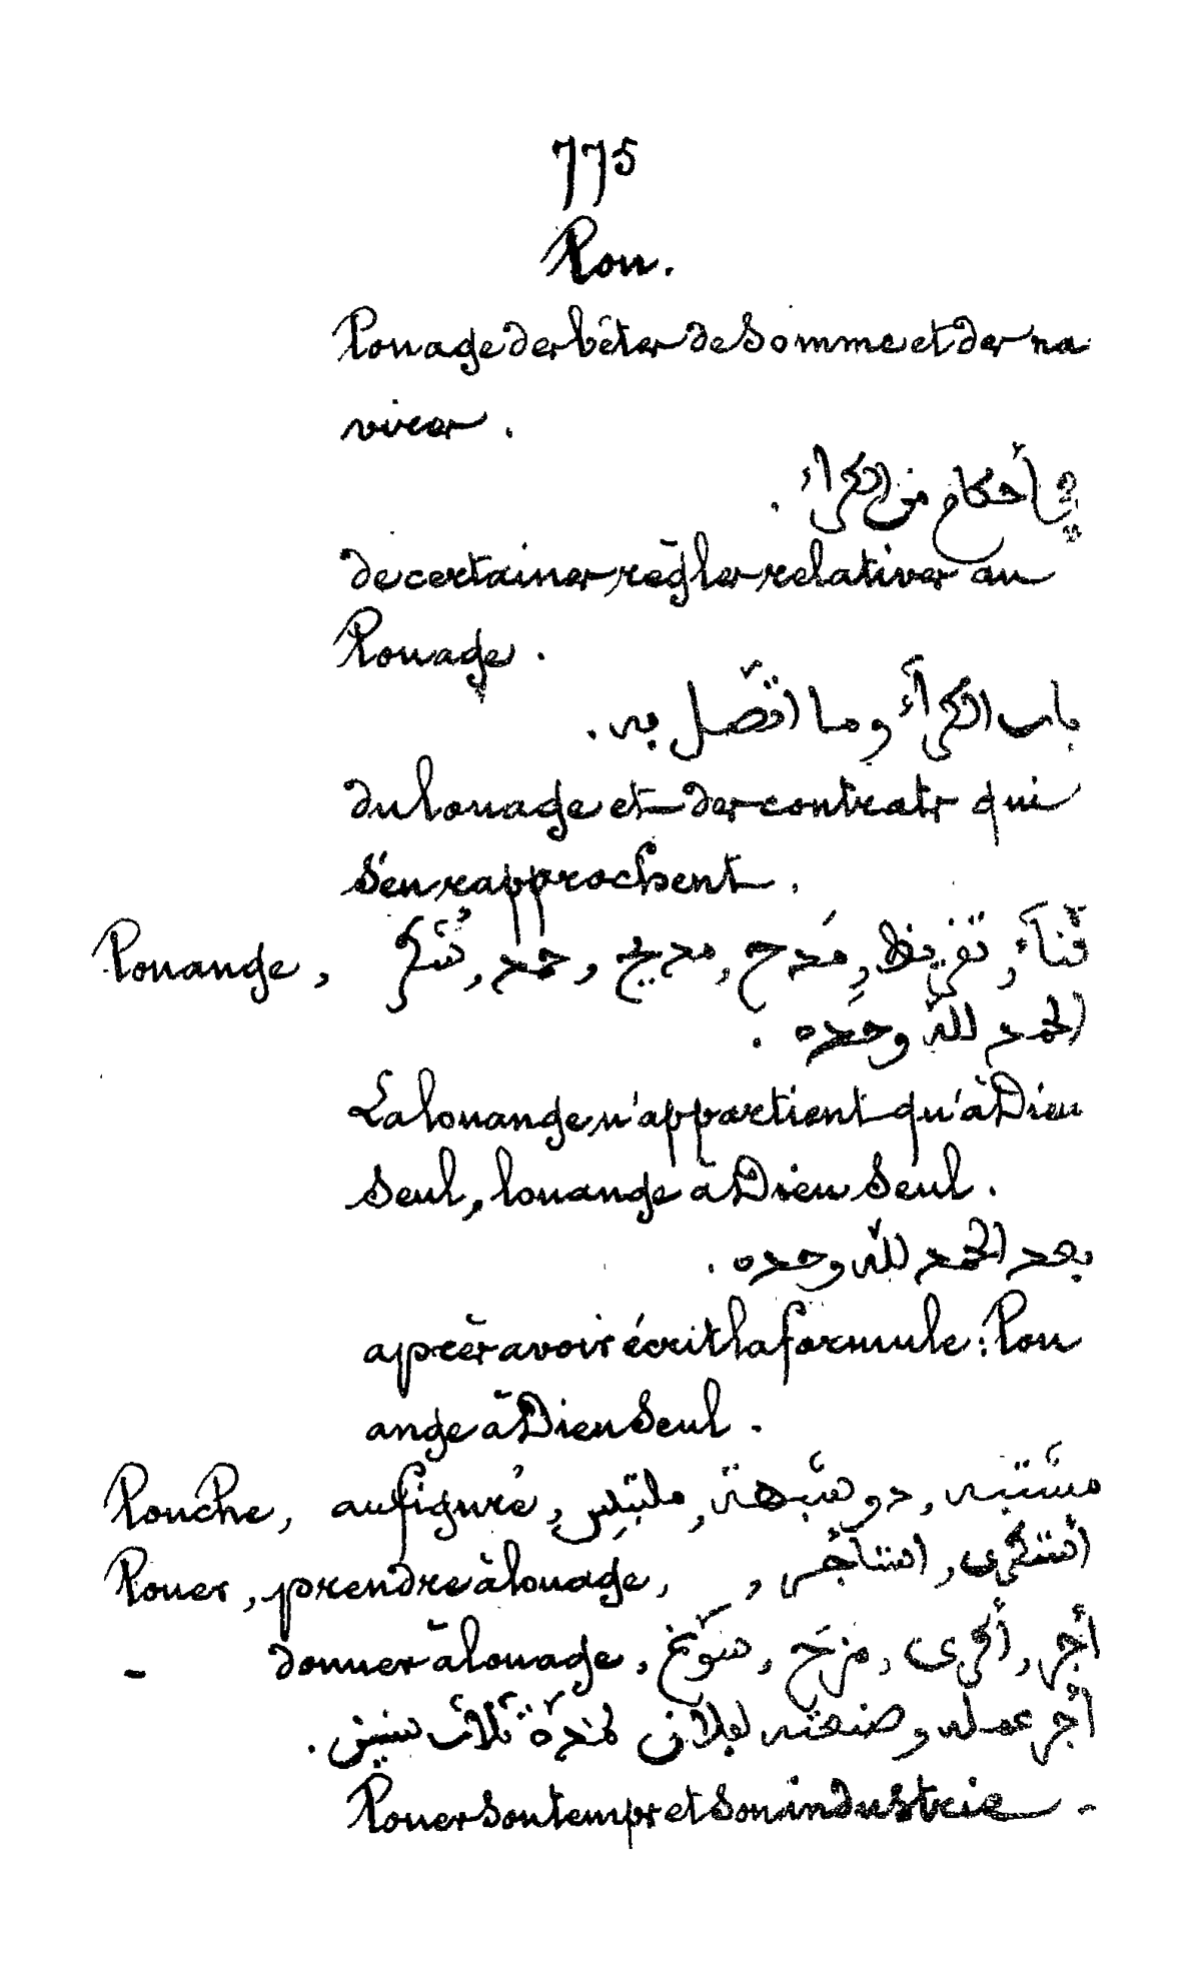 775
Lou.
Louage des bêtes de somme et des na
vires.
في أحكام من الكراء.
de certaines règles relatives au
Louage.
باب الكراء وما اتصل به.
du louage et des contrats qui
s'en rapprochent.
Louange, ثناء, تقريظ, مدح, مديح, حمد, شكر
الحمد لله وحده.
La louange n'appartient qu'à Dieu
seul, louange à Dieu seul.
بعد الحمد لله وحده.
après avoir écrit la formule: Lou
ange à Dieu seul.
Louche, au figuré, مشتبه, ذو شبهة, ملتبس
Louer, prendre à louage, استكرى, استأجر,
- donner à louage, أجر, أكرى,
أجر عمله وصنعته لفلان لمدة ثلاث سنين.
Louer son temps et son industrie -